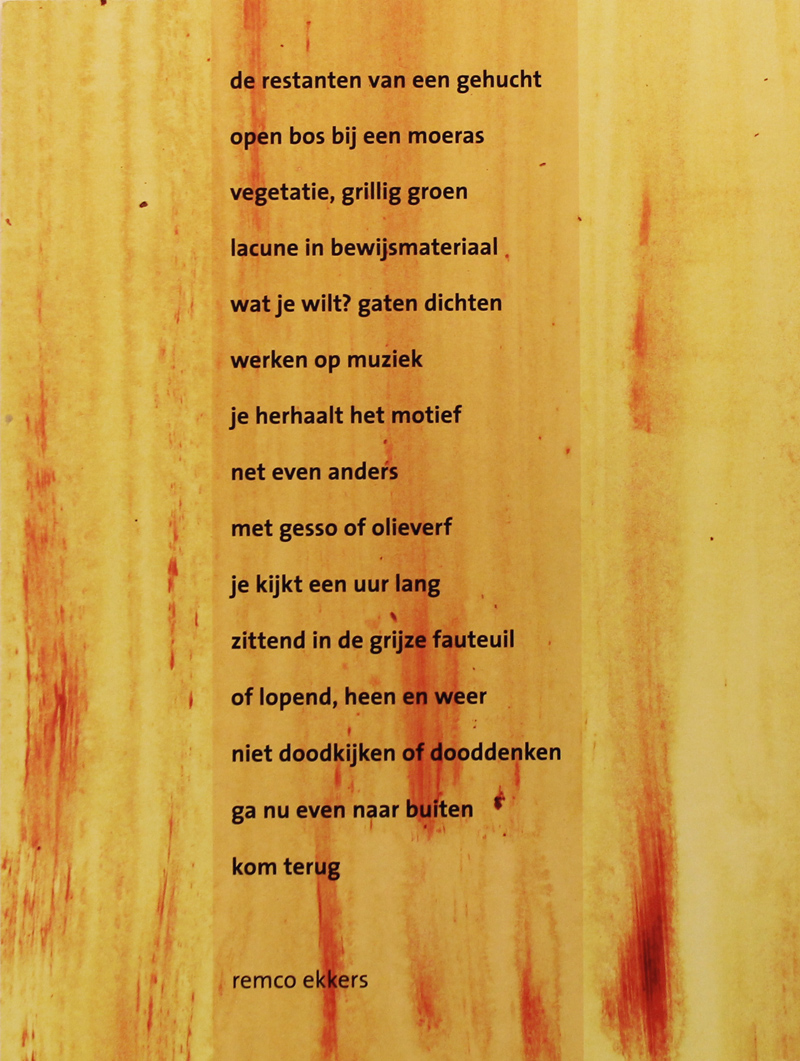 de restanten van een gehucht
open bos bij een moeras
vegetatie, grillig groen
lacune in bewijsmateriaal
wat je wilt? gaten dichten
werken op muziek
je herhaalt het motief
net even anders
met gesso of olieverf
je kijkt een uur lang
zittend in de grijze fauteuil
of lopend, heen en weer
niet doodkijken of dooddenken
ga nu even naar buiten
kom terug
remco ekkers